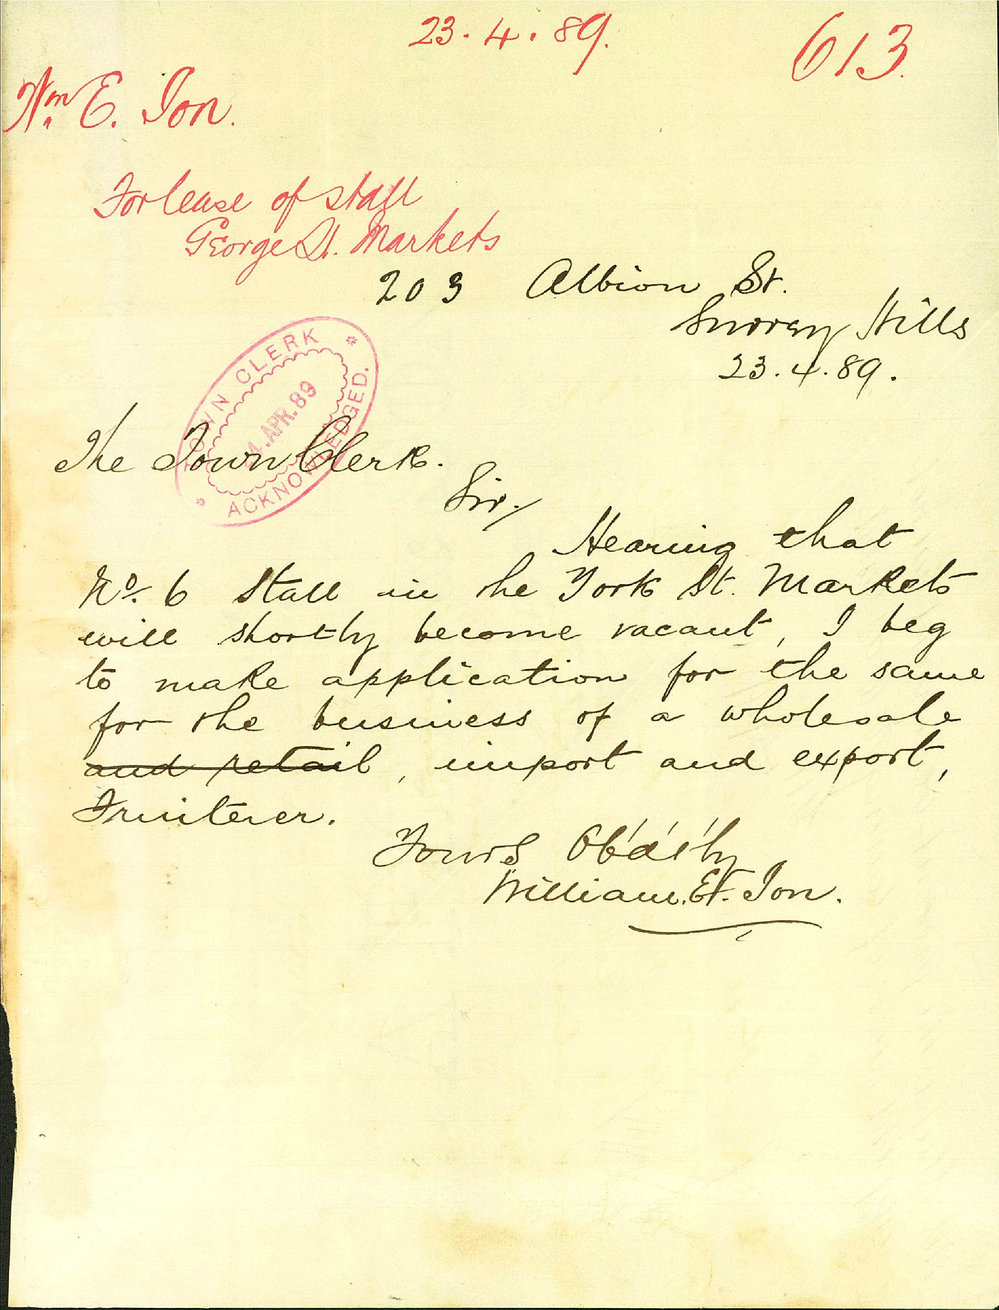 23.4.89.
613.
Wm. E. Ion.
For lease of stall
George St. Markets
203 Albion St.
Surray Hills
23.4.89.
TOWN CLERK
24.APR.89
ACKNOWLEDGED.
The Town Clerk.
Sir,
Hearing that
No. 6 Stall in the York St. Markets
will shortly become vacant, I beg
to make application for the same
for the business of a wholesale
and retail, import and export,
Fruiterer.
Yours Ob'd'tly
William. E. Ion.